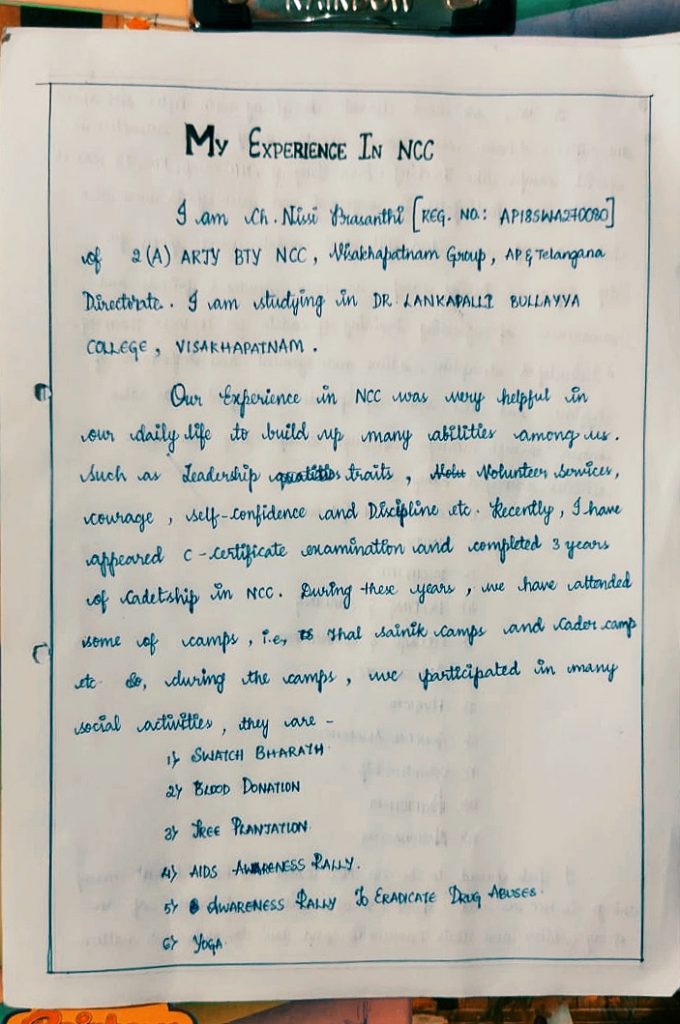 RAINBOW
My Experience In NCC
I am Ch. Nissi Prasanthi [REG. NO.: AP18SWA270080]
of 2(A) ARTY BTY NCC, Visakhapatnam Group, AP & Telangana
Directorate. I am studying in DR. LANKAPALLI BULLAYYA
COLLEGE, VISAKHAPATNAM.
Our Experience in NCC was very helpful in
our daily life to build up many abilities among us.
Such as Leadership traits, Volunteer Services,
courage, self-confidence and Discipline etc. Recently, I have
appeared C-certificate examination and completed 3 years
of Cadetship in NCC. During these years, we have attended
some of camps, i.e., Thal Sainik Camps and Cader camp
etc. So, during the camps, we participated in many
social activities, they are -
1) SWATCH BHARATH.
2) BLOOD DONATION
3) TREE PLANTATION.
4) AIDS AWARENESS RALLY.
5) AWARENESS RALLY TO ERADICATE DRUG ABUSES.
6) YOGA.